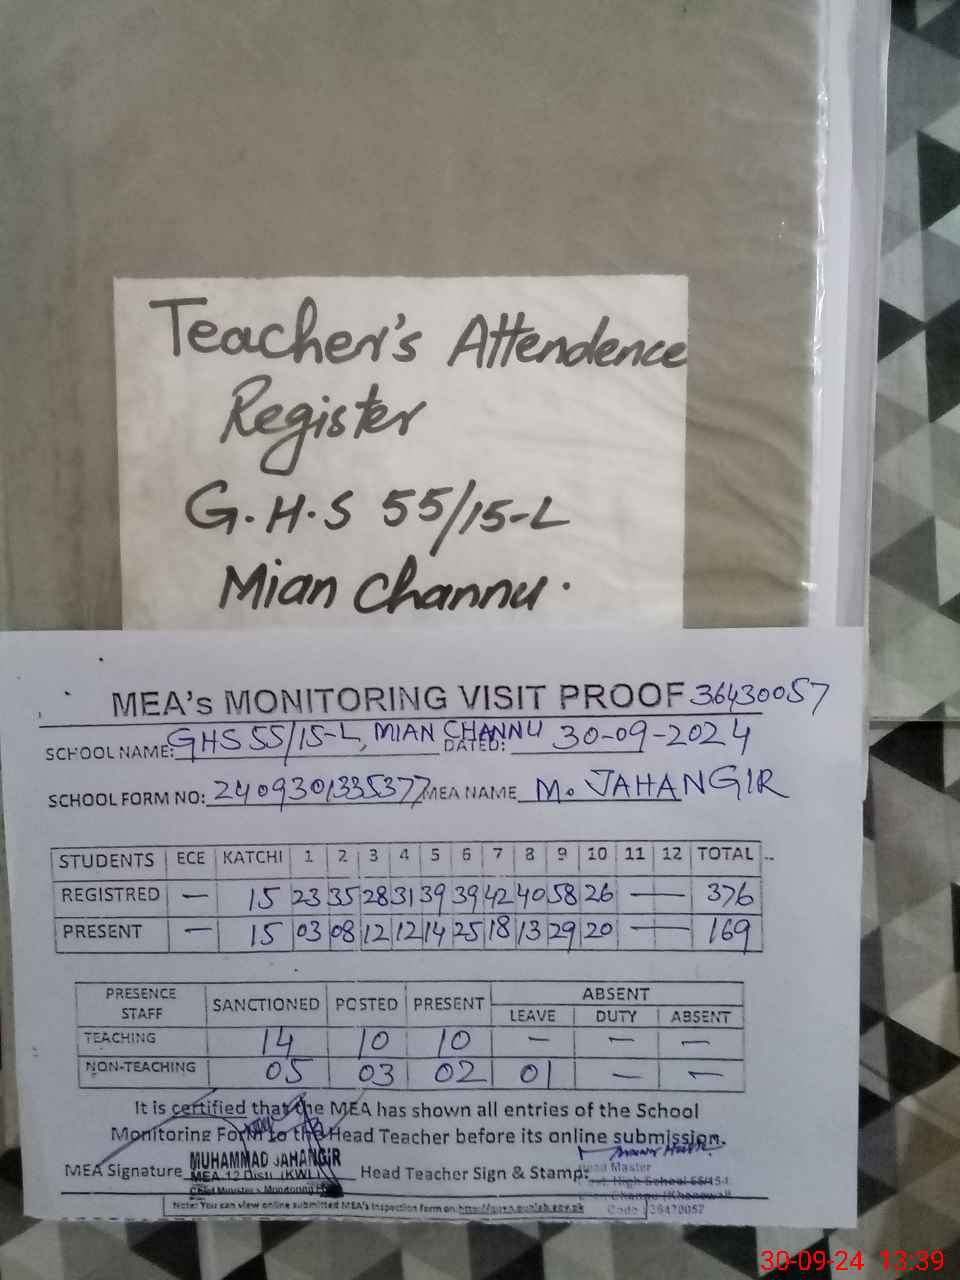 Teacher's Attendence
Register
G.H.S 55/15-L
Mian Channu.
MEA's MONITORING VISIT PROOF 36430057
SCHOOL NAME: GHS 55/15-L, MIAN CHANNU DATED: 30-09-2024
SCHOOL FORM NO: 2409301335377 MEA NAME M. JAHANGIR
STUDENTS ECE KATCHI 1 2 3 4 5 6 7 8 9 10 11 12 TOTAL
REGISTRED — 15 23 35 28 31 39 39 42 40 58 26 — 376
PRESENT — 15 03 08 12 12 14 25 18 13 29 20 — 169
PRESENCE STAFF SANCTIONED POSTED PRESENT ABSENT
LEAVE DUTY ABSENT
TEACHING 14 10 10 — — —
NON-TEACHING 05 03 02 01 — —
It is certified that the MEA has shown all entries of the School
Monitoring Form to the Head Teacher before its online submission.
MEA Signature MUHAMMAD JAHANGIR Head Teacher Sign & Stamp:
MEA-12 Distt. (KWL) Head Master
Chief Minister's Monitoring High School 55/15-L
Note: You can view online submitted MEA's inspection form on: Code:
30-09-24 13:39